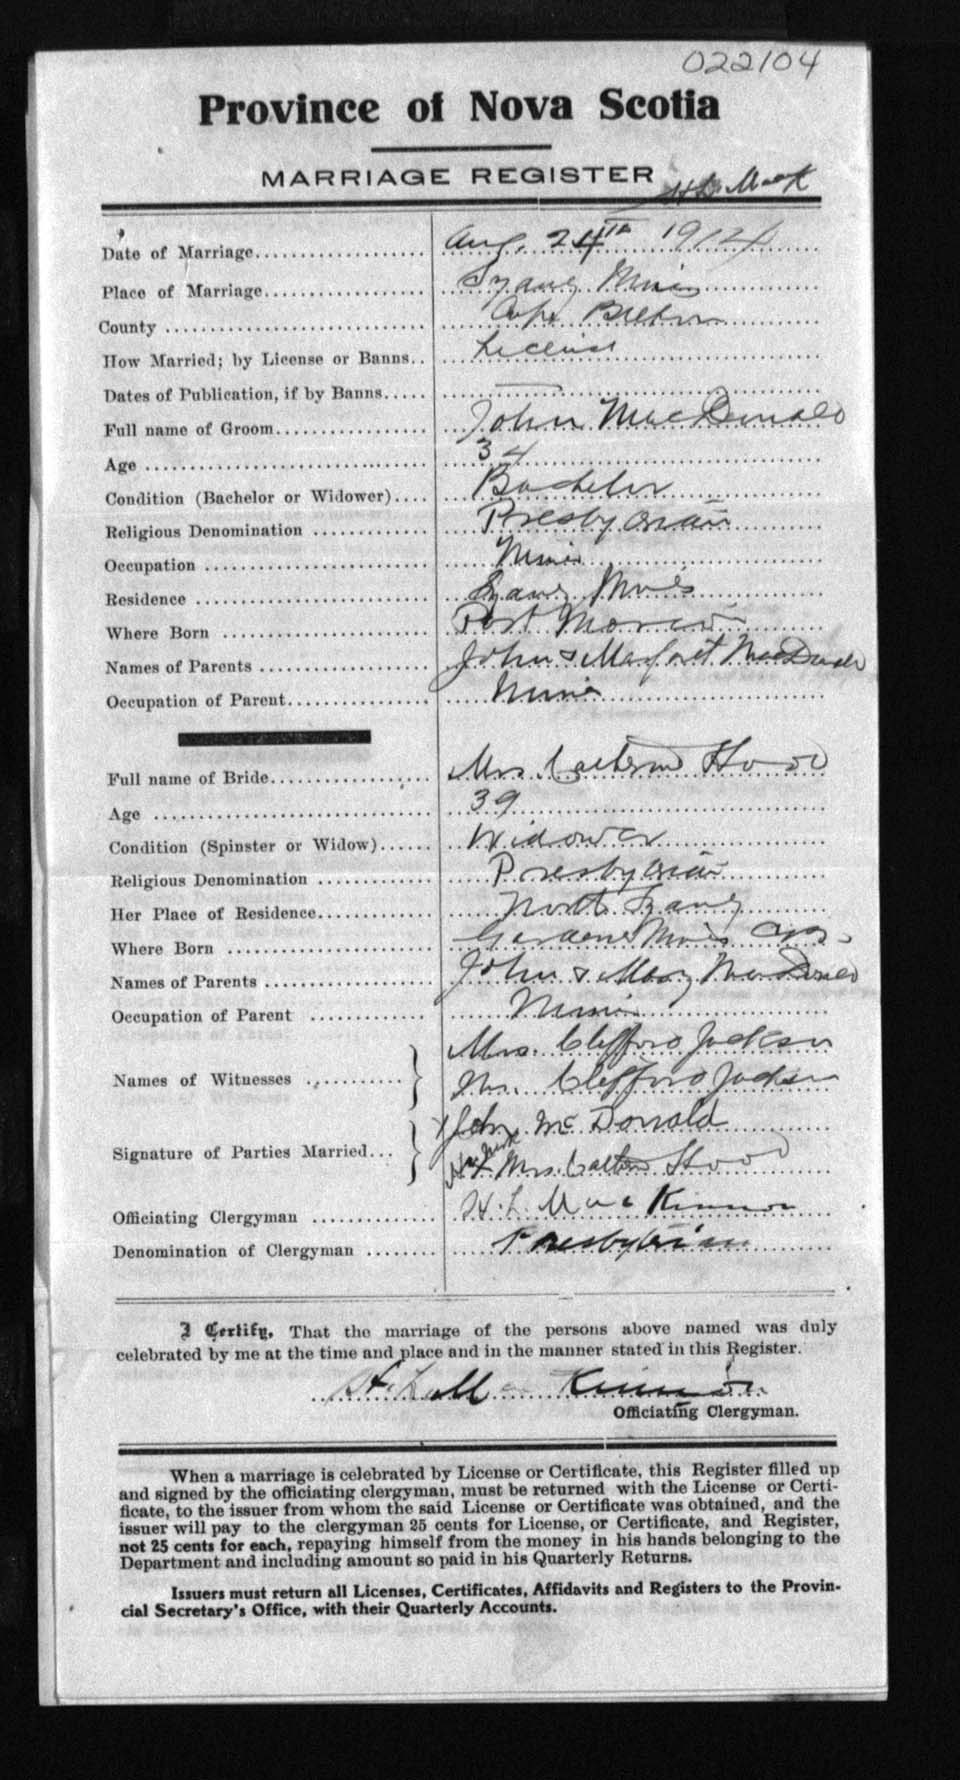 022104
Province of Nova Scotia
MARRIAGE REGISTER
Date of Marriage Aug. 24th 1914
Place of Marriage Sydney Mines
County Cape Breton
How Married; by License or Banns License
Dates of Publication, if by Banns
Full name of Groom John MacDonald
Age 34
Condition (Bachelor or Widower) Bachelor
Religious Denomination Presbyterian
Occupation Miner
Residence Sydney Mines
Where Born Port Morien
Names of Parents John & Margaret MacDonald
Occupation of Parent Miner
Full name of Bride Mrs. Catherine Hood
Age 39
Condition (Spinster or Widow) Widower
Religious Denomination Presbyterian
Her Place of Residence North Sydney
Where Born Gardener Mines C.B.
Names of Parents John & Mary MacDonald
Occupation of Parent Miner
Names of Witnesses Mrs. Clifford Jackson
Mr. Clifford Jackson
Signature of Parties Married John McDonald
Her X mark Mrs. Catherine Hood
Officiating Clergyman H. L. MacKinnon
Denomination of Clergyman Presbyterian
I Certify, That the marriage of the persons above named was duly
celebrated by me at the time and place and in the manner stated in this Register.
H. L. MacKinnon
Officiating Clergyman.
When a marriage is celebrated by License or Certificate, this Register filled up
and signed by the officiating clergyman, must be returned with the License or Certi-
ficate, to the issuer from whom the said License or Certificate was obtained, and the
issuer will pay to the clergyman 25 cents for License, or Certificate, and Register,
not 25 cents for each, repaying himself from the money in his hands belonging to the
Department and including amount so paid in his Quarterly Returns.
Issuers must return all Licenses, Certificates, Affidavits and Registers to the Provin-
cial Secretary's Office, with their Quarterly Accounts.